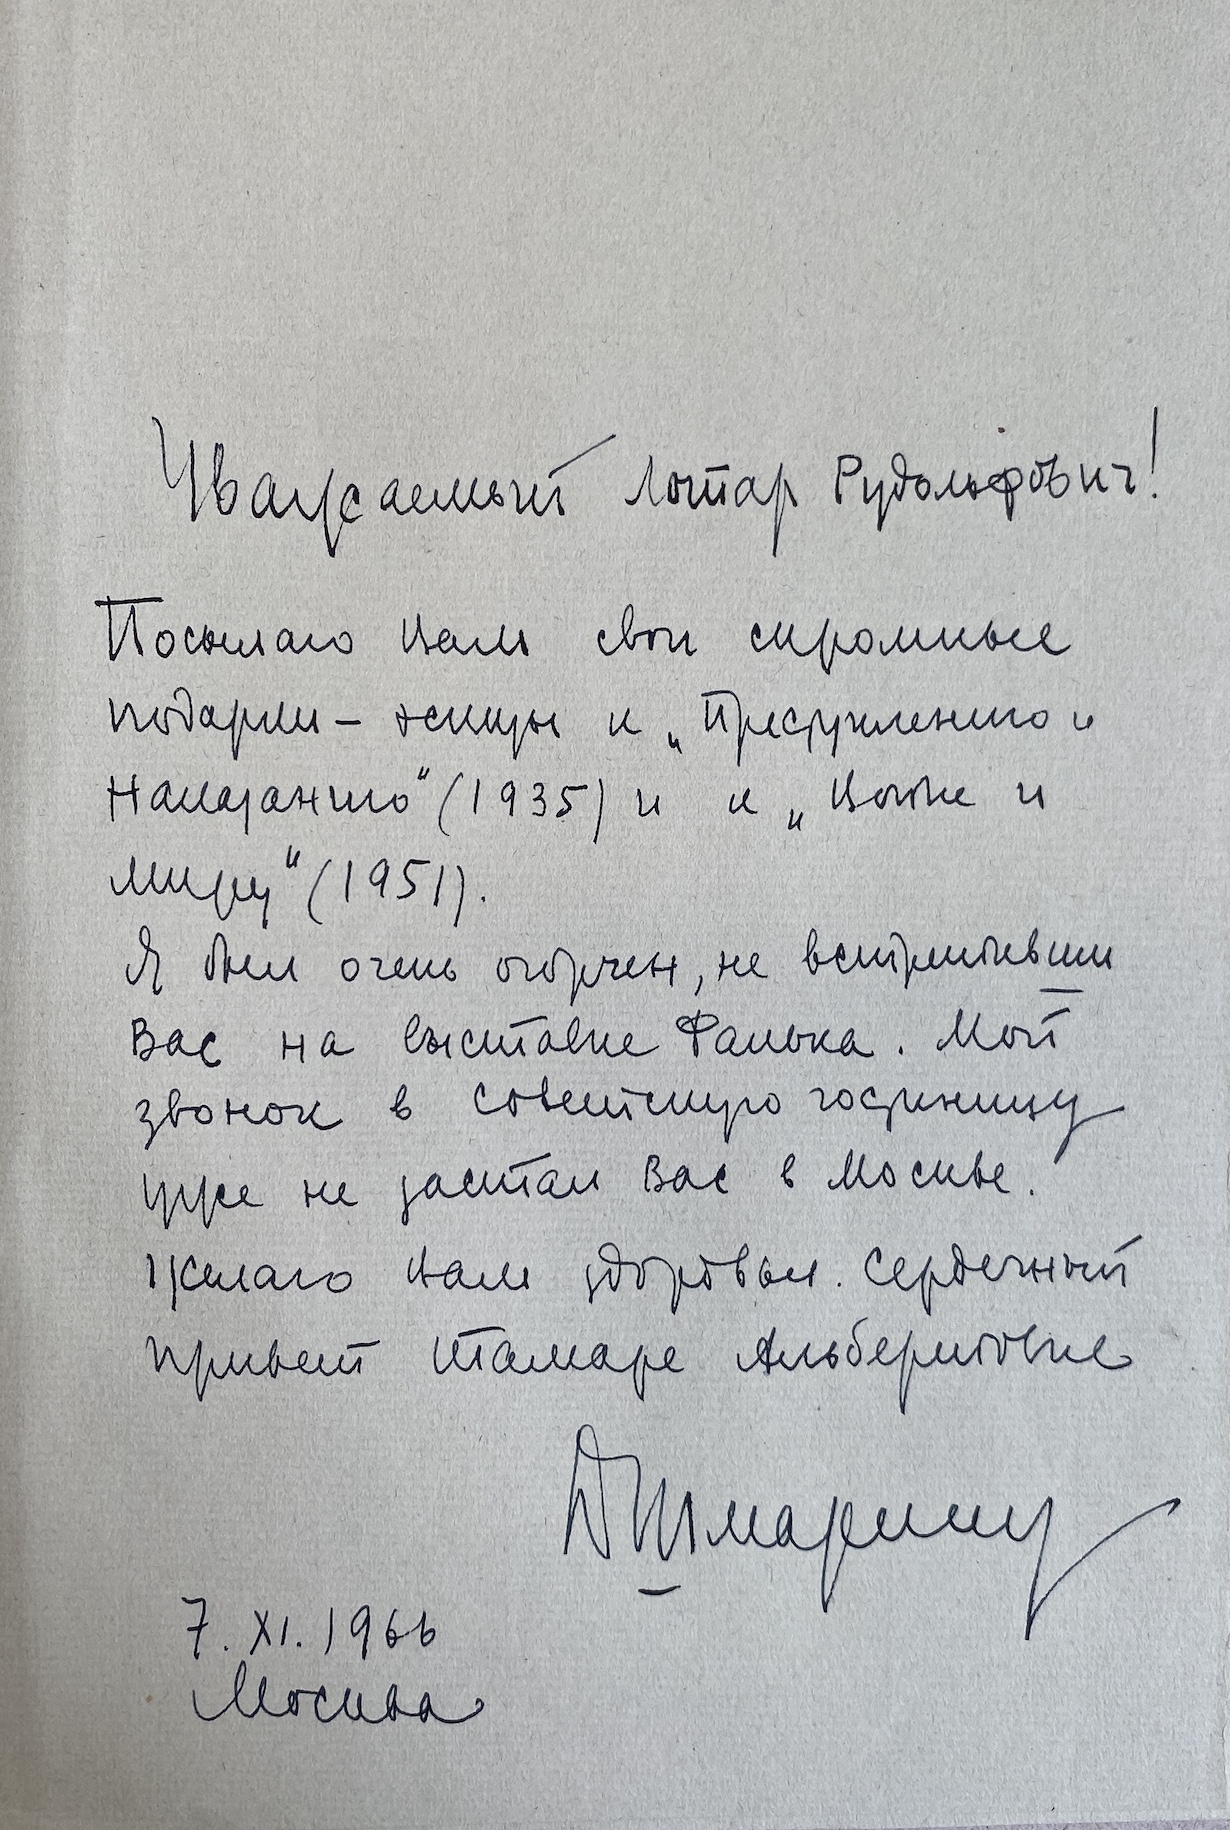 Уважаемый Лотар Рудольфович!
Посылаю Вам свои скромные
подарки – эскизы к „Преступлению и
Наказанию“ (1935) и к „Войне и
миру“ (1951).
Я был очень огорчен, не встретивши
Вас на выставке Фалька. Мой
звонок в Советскую гостиницу
уже не застал Вас в Москве.
Желаю Вам здоровья. Сердечный
привет Тамаре Альбертовне
ДШмаринов
7. XI. 1966
Москва